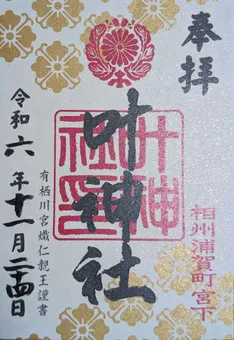 奉拝
相州浦賀町宮下
叶神社
叶神
社印
有栖川宮熾仁親王謹書
令和六年十一月二十四日